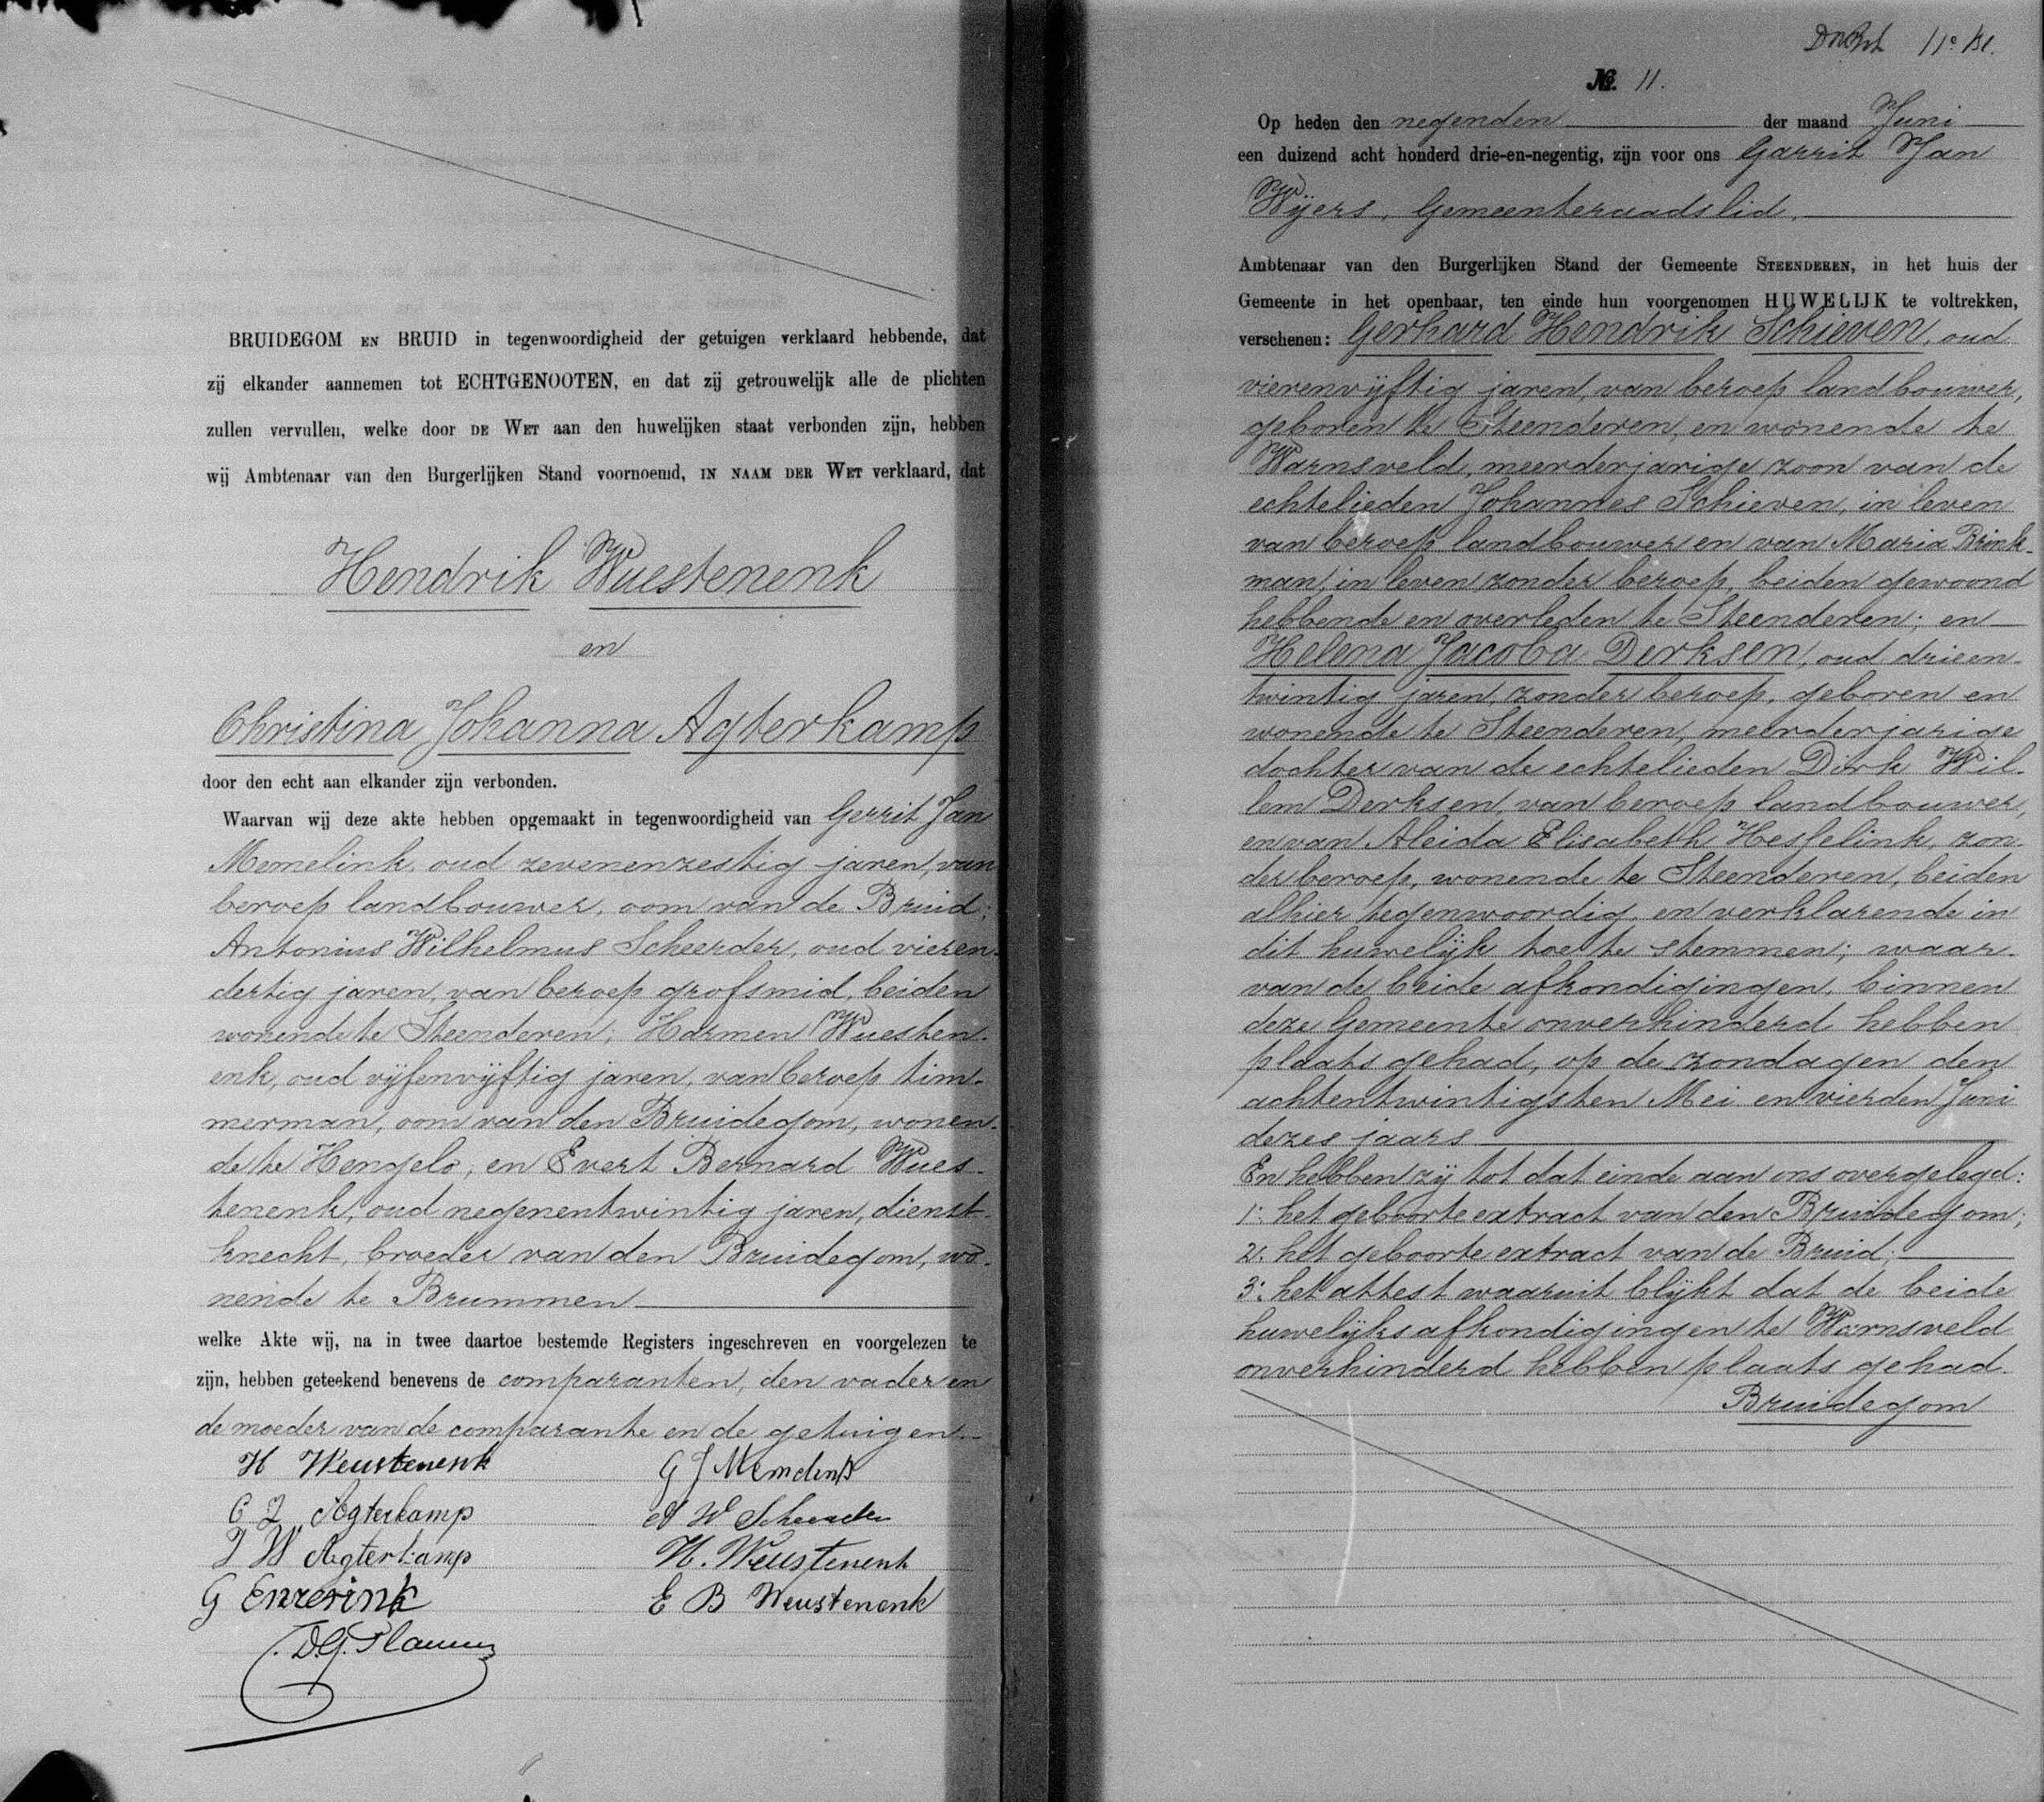 BRUIDEGOM EN BRUID in tegenwoordigheid der getuigen verklaard hebbende, dat
zij elkander aannemen tot ECHTGENOOTEN, en dat zij getrouwelijk alle de plichten
zullen vervullen, welke door DE WET aan den huwelijken staat verbonden zijn, hebben
wij Ambtenaar van den Burgerlijken Stand voornoemd, IN NAAM DER WET verklaard, dat
Hendrik Wuestenenk
en
Christina Johanna Agterkamp
door den echt aan elkander zijn verbonden.
Waarvan wij deze akte hebben opgemaakt in tegenwoordigheid van Gerrit Jan
Memelink, oud zevenenzestig jaren, van
beroep landbouwer, oom van de Bruid;
Antonius Wilhelmus Scheerder, oud vieren-
dertig jaren, van beroep grofsmid, beiden
wonende te Steenderen; Harmen Wuesten-
enk, oud vijfenvijftig jaren, van beroep tim-
merman, oom van den Bruidegom, wonen-
de te Hengelo, en Evert Bernard Wues-
tenenk, oud negenentwintig jaren, dienst-
knecht, broeder van den Bruidegom, wo-
nende te Brummen
welke Akte wij, na in twee daartoe bestemde Registers ingeschreven en voorgelezen te
zijn, hebben geteekend benevens de comparanten, den vader en
de moeder van de comparante en de getuigen.
H Weustenenk
G J Memelink
C J Agterkamp
A W Scheerder
J W Agterkamp
H. Weustenenk
G Enzerink
E B Weustenenk
No. 11.
Op heden den negenden der maand Juni
een duizend acht honderd drie-en-negentig, zijn voor ons Garrit Jan
Wijers, Gemeenteraadslid,
Ambtenaar van den Burgerlijken Stand der Gemeente STEENDEREN, in het huis der
Gemeente in het openbaar, ten einde hun voorgenomen HUWELIJK te voltrekken,
verschenen: Gerhard Hendrik Schieven, oud
vierenvijftig jaren, van beroep landbouwer,
geboren te Steenderen, en wonende te
Warnsveld, meerderjarige zoon van de
echtelieden Johannes Schieven, in leven
van beroep landbouwer en van Maria Brink-
man, in leven zonder beroep, beiden gewoond
hebbende en overleden te Steenderen; en
Helena Jacoba Derksen, oud drieen-
twintig jaren, zonder beroep, geboren en
wonende te Steenderen, meerderjarige
dochter van de echtelieden Dirk Wil-
lem Derksen, van beroep landbouwer,
en van Aleida Elisabeth Hesselink, zon-
der beroep, wonende te Steenderen, beiden
alhier tegenwoordig, en verklarende in
dit huwelijk toe te stemmen; waar-
van de beide afkondigingen, binnen
deze Gemeente onverhinderd hebben
plaats gehad, op de zondagen den
achtentwintigsten Mei en vierden Juni
dezes jaars
En hebben zij tot dat einde aan ons overgelegd:
1. het geboorte extract van den Bruidegom;
2. het geboorte extract van de Bruid;
3. het attest waaruit blijkt dat de beide
huwelijks afkondigingen te Warnsveld
onverhinderd hebben plaats gehad.
Bruidegom